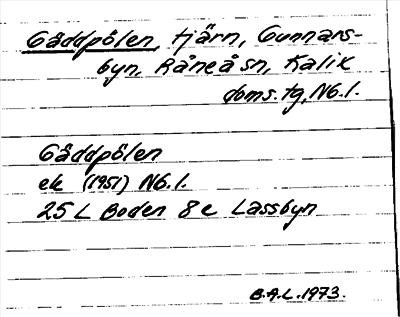 Gäddpölen, tjärn, Gunnars-
byn, Råneå sn, Kalix
doms. tg, Nb.l.
Gäddpölen
ek (1951) Nb.l.
25 L Boden 8 e Lassbyn
B.A.L. 1973.